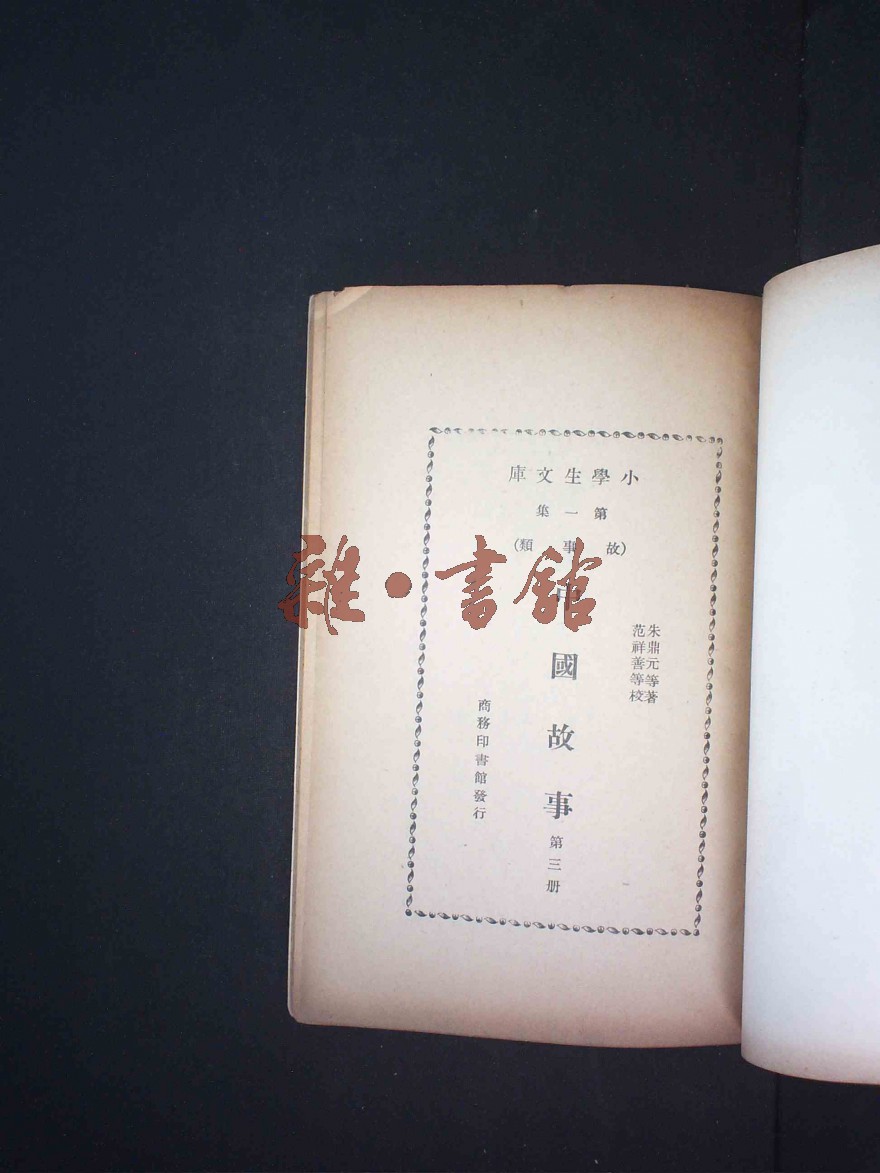 小學生文庫
第一集
(故事類)
朱鼎元等著
范祥善等校
中國故事
第三册
商務印書館發行
雜·書館